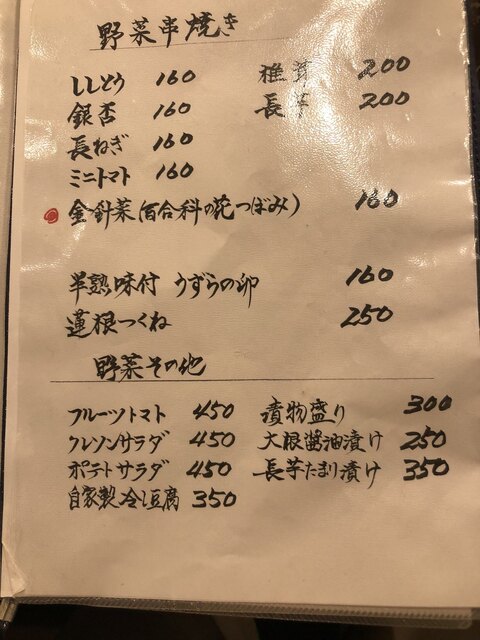 野菜串焼き
ししとう 160 椎茸 200
銀杏 160 長芋 200
長ねぎ 160
ミニトマト 160
金針菜(百合科の花つぼみ) 160
半熟味付 うずらの卵 160
蓮根つくね 250
野菜その他
フルーツトマト 450 漬物盛り 300
クレソンサラダ 450 大根醤油漬け 250
ポテトサラダ 450 長芋たまり漬け 350
自家製冷し豆腐 350